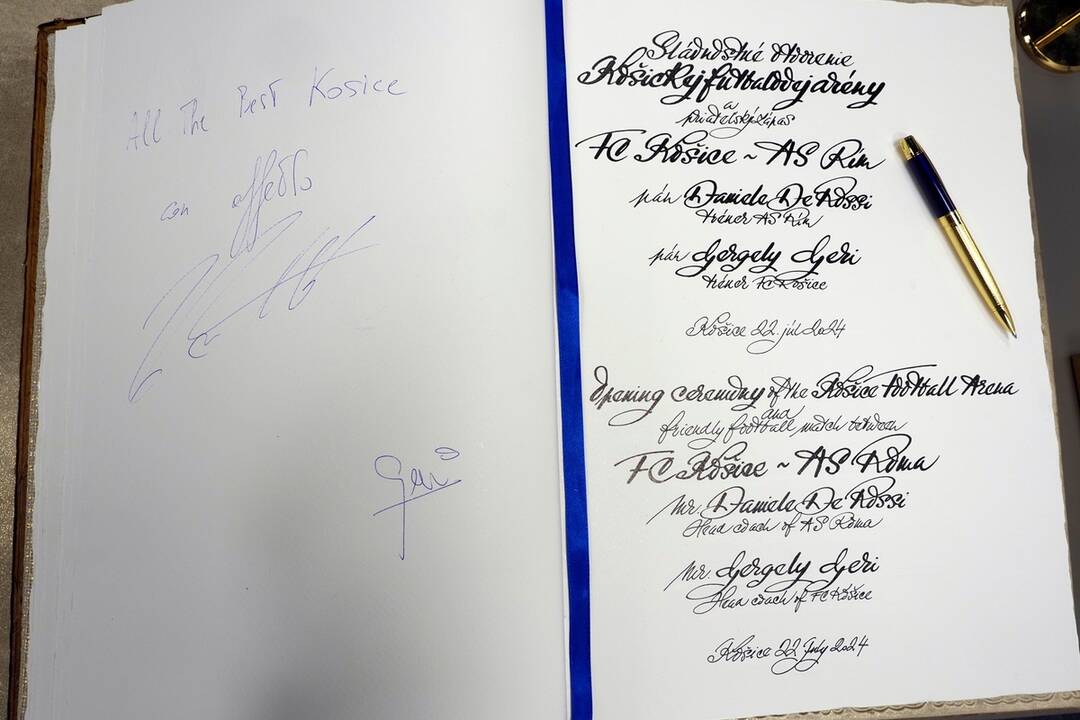 All The Best Kosice
con affetto
Geri
Slávnostné otvorenie
Košickej futbalovej arény
a
priateľský zápas
FC Košice ~ AS Rím
pán Daniele De Rossi
tréner AS Rím
pán Gergely Geri
tréner FC Košice
Košice 22. júl 2024
Opening ceremony of the Košice Football Arena
and
friendly football match between
FC Košice ~ AS Roma
Mr. Daniele De Rossi
Head coach of AS Roma
Mr. Gergely Geri
Head coach of FC Košice
Košice 22 July 2024